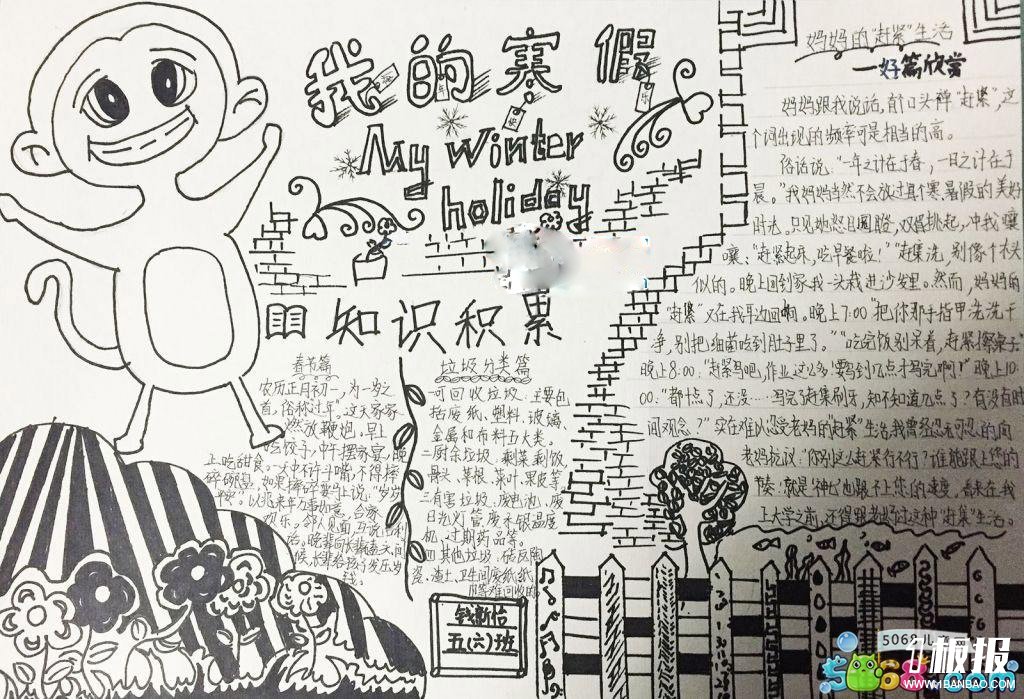 我的寒假
My winter
holiday
知识积累
春节篇
农历正月初一,为一岁之
首,俗称过年。这天家家
燃放鞭炮。早上
吃饺子,中午摆家宴,晚
上吃甜食。一天中行斗嘴,不得摔
碎碗盘。如果摔碎要马上说:“岁岁
平安”。以兆来年万事如意。合家
欢乐。邻人见面,互说吉利
话。晚辈向长辈拜天问
候,长辈给孩子发压岁
钱。
垃圾分类篇
一可回收垃圾:主要包
括废纸、塑料、玻璃、
金属和布料五大类。
二厨余垃圾:剩菜剩饭
骨头、菜根、菜叶、果皮等
三有害垃圾:废电池、废
日光灯管废水银温度
机、过期药品等。
四其他垃圾:砖瓦陶
瓷、渣土、卫生间废纸、纸
巾等难回收的
五(六)班
妈妈的“赶紧”生活
一好篇欣赏
妈妈跟我说话,有个口头禅“赶紧”,这
个词出现的频率可是相当的高。
俗话说:“一年之计在于春,一日之计在于
晨。”我妈妈当然不会放过每个寒暑假的美好
时光。只见她怒目圆瞪,双眉挑起,冲我嚷
嚷:“赶紧起床,吃早餐啦!”“赶紧洗,别像个木头
似的。晚上回到家,我一头栽进沙发里。然而,妈妈的
“赶紧”又在我耳边回响。晚上7:00“把你那手指甲洗洗干
净,别把细菌吃到肚子里了。”“吃完饭别呆着,赶紧擦桌子”
晚上8:00:“赶紧写吧,作业这么多,要写到几点才写完啊!”晚上10:
00:“都十点了,还没……写完了赶紧刷牙,知不知道几点了?有没有时
间观念?”实在难以忍受老妈的“赶紧”生活,我需忍无可忍的向
老妈抗议:“你别这么赶来行不行?谁能跟上您的
节奏!就是‘神七’也跟不上您的速度,看来在我
上大学之前,还得跟老妈过这种“赶紧”生活。
板报
WWW.1BANBAO.COM